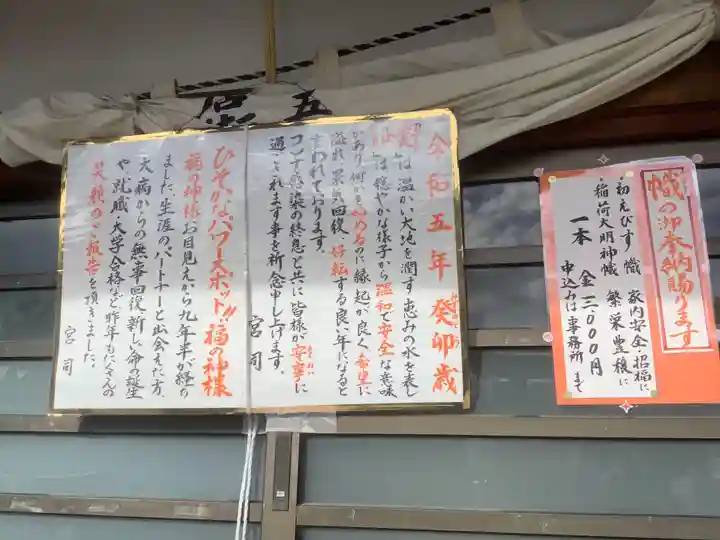 幟の御奉納賜ります
初えびす幟 家内安全・招福に
稲荷大明神幟 繁栄豊穣に
一本 金三〇〇〇円
申込みは事務所まで
令和五年 癸卯歳
「癸」は温かい大地を潤す恵みの水を表し
「卯」は穏やかな様子から温和で安全な意味
があり、何かを始めるのに縁起が良く希望に
溢れ、景気回復、好転する良い年になると
言われております。
コロナ感染の終息と共に皆様が安寧に
過ごされます事を祈念申し上げます。
宮司
ひそかなパワースポット!!福の神様
福の神様お目見えから九年半が経ち
ました。生涯のパートナーと出会えた方、
大病からの無事回復、新しい命の誕生
や、就職・大学合格など昨年もたくさんの
笑顔のご報告を頂きました。
宮司
五